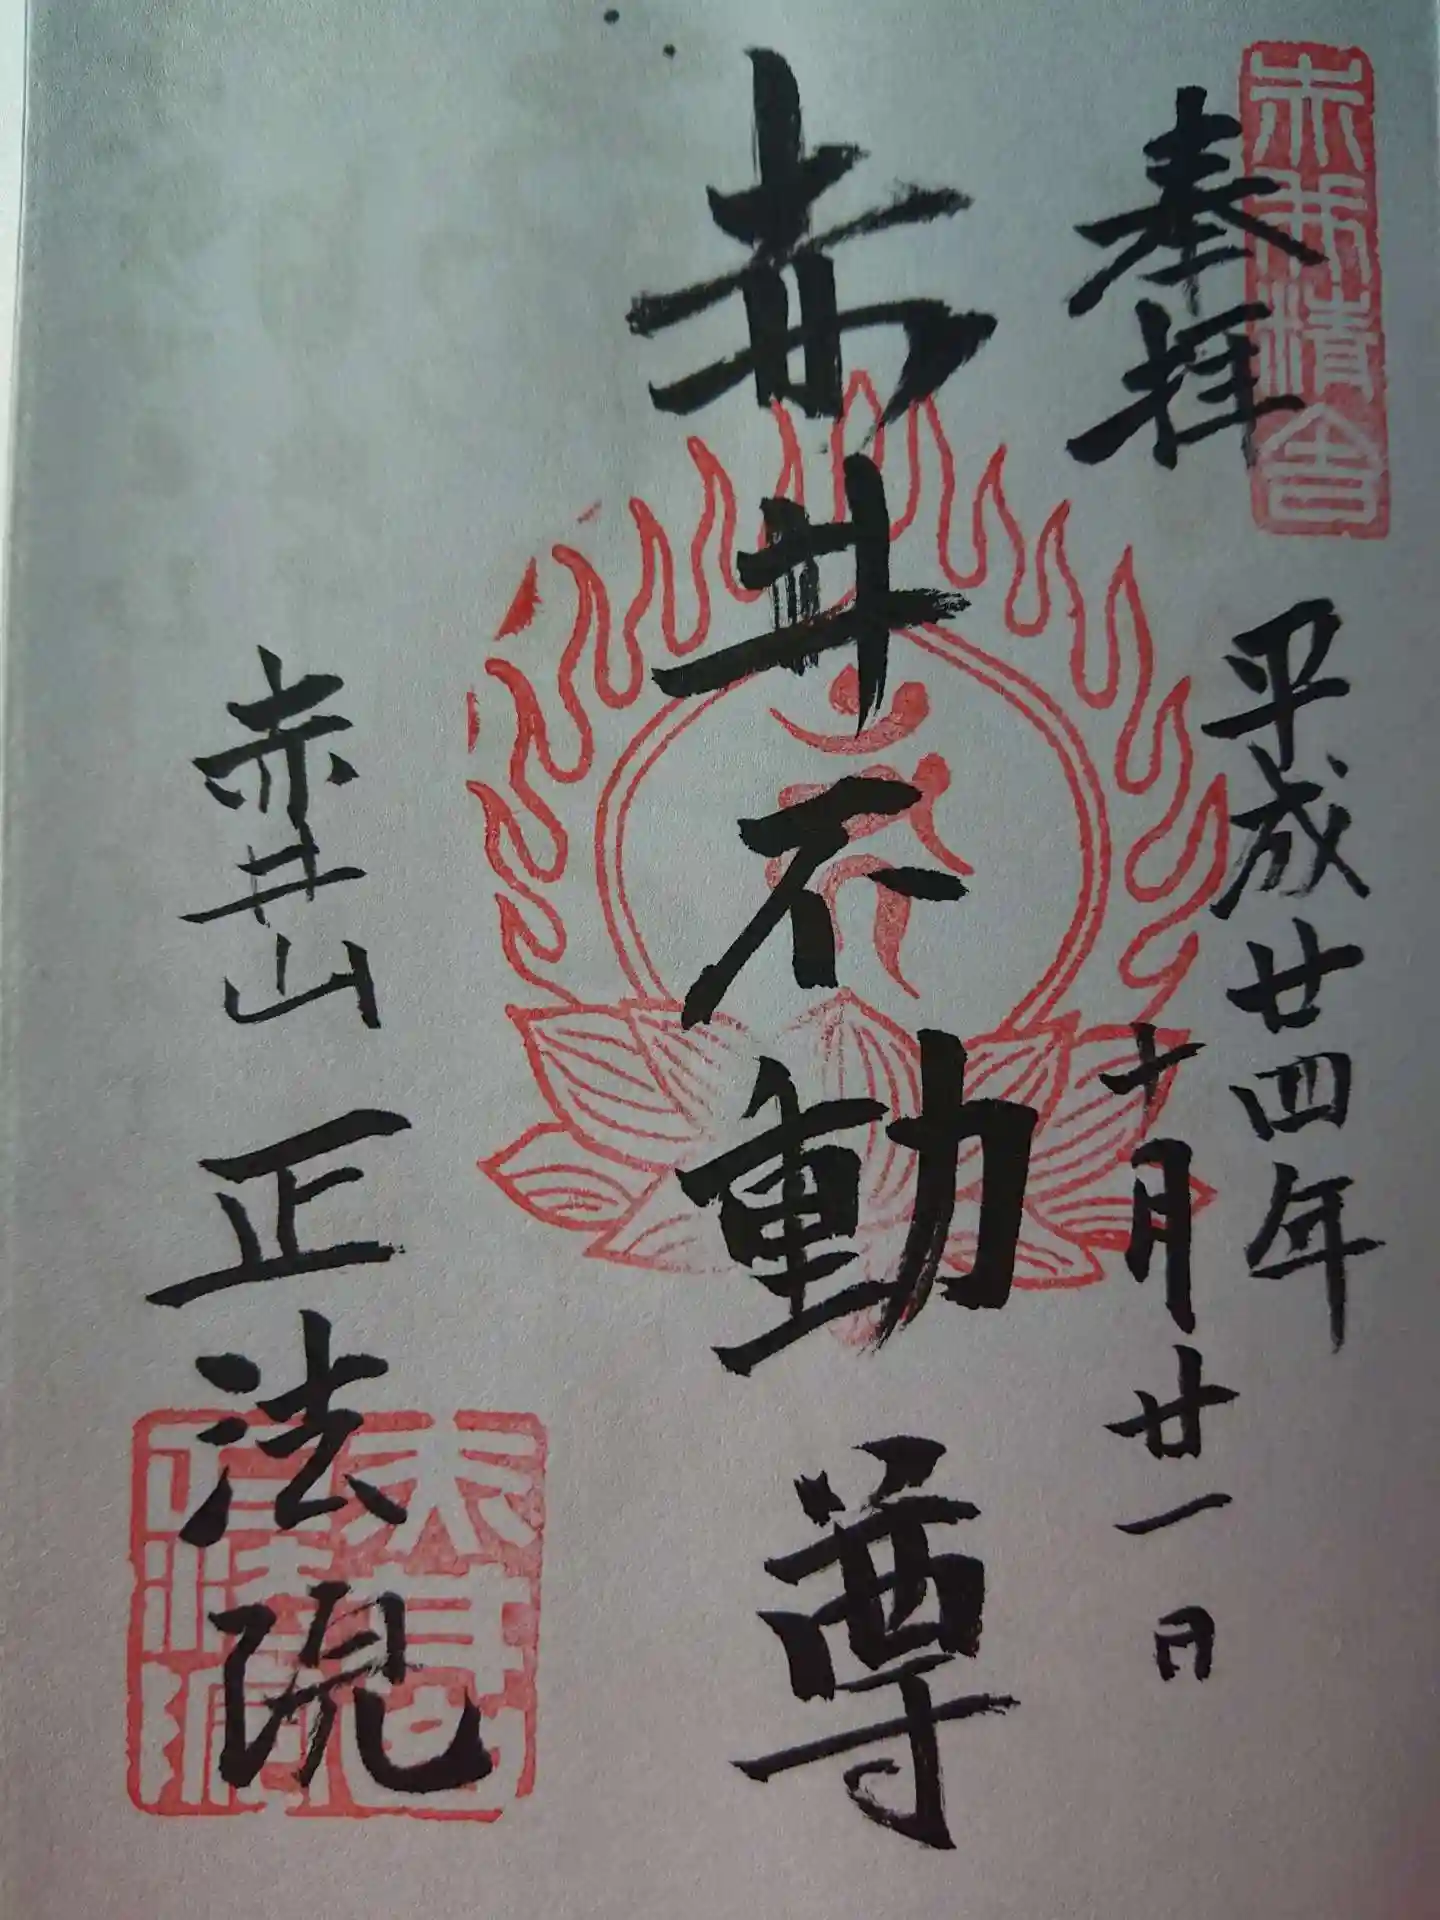 赤井精舎
奉拝
平成廿四年
十月廿一日
赤井不動尊
赤井山正法院